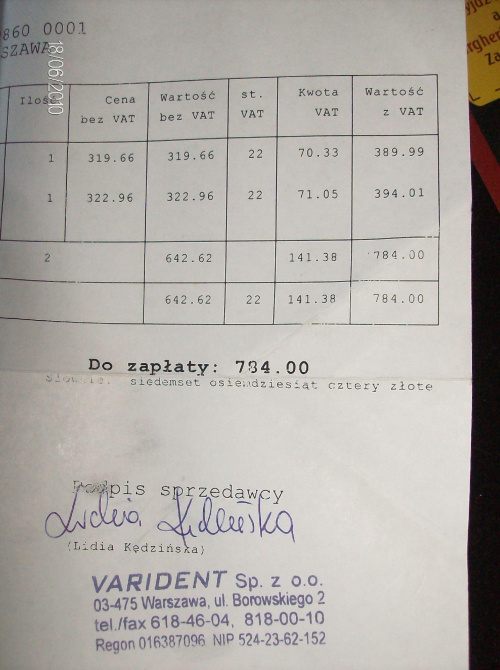 860 0001
SZAWA
18/06/2010
Ilość Cena bez VAT Wartość bez VAT st. VAT Kwota VAT Wartość z VAT
1 319.66 319.66 22 70.33 389.99
1 322.96 322.96 22 71.05 394.01
2 642.62 141.38 784.00
642.62 22 141.38 784.00
Do zapłaty: 784.00
Słownie: siedemset osiemdziesiąt cztery złote
Podpis sprzedawcy
Lidia Kędzińska
(Lidia Kędzińska)
VARIDENT Sp. z o.o.
03-475 Warszawa, ul. Borowskiego 2
tel./fax 618-46-04, 818-00-10
Regon 016387096 NIP 524-23-62-152